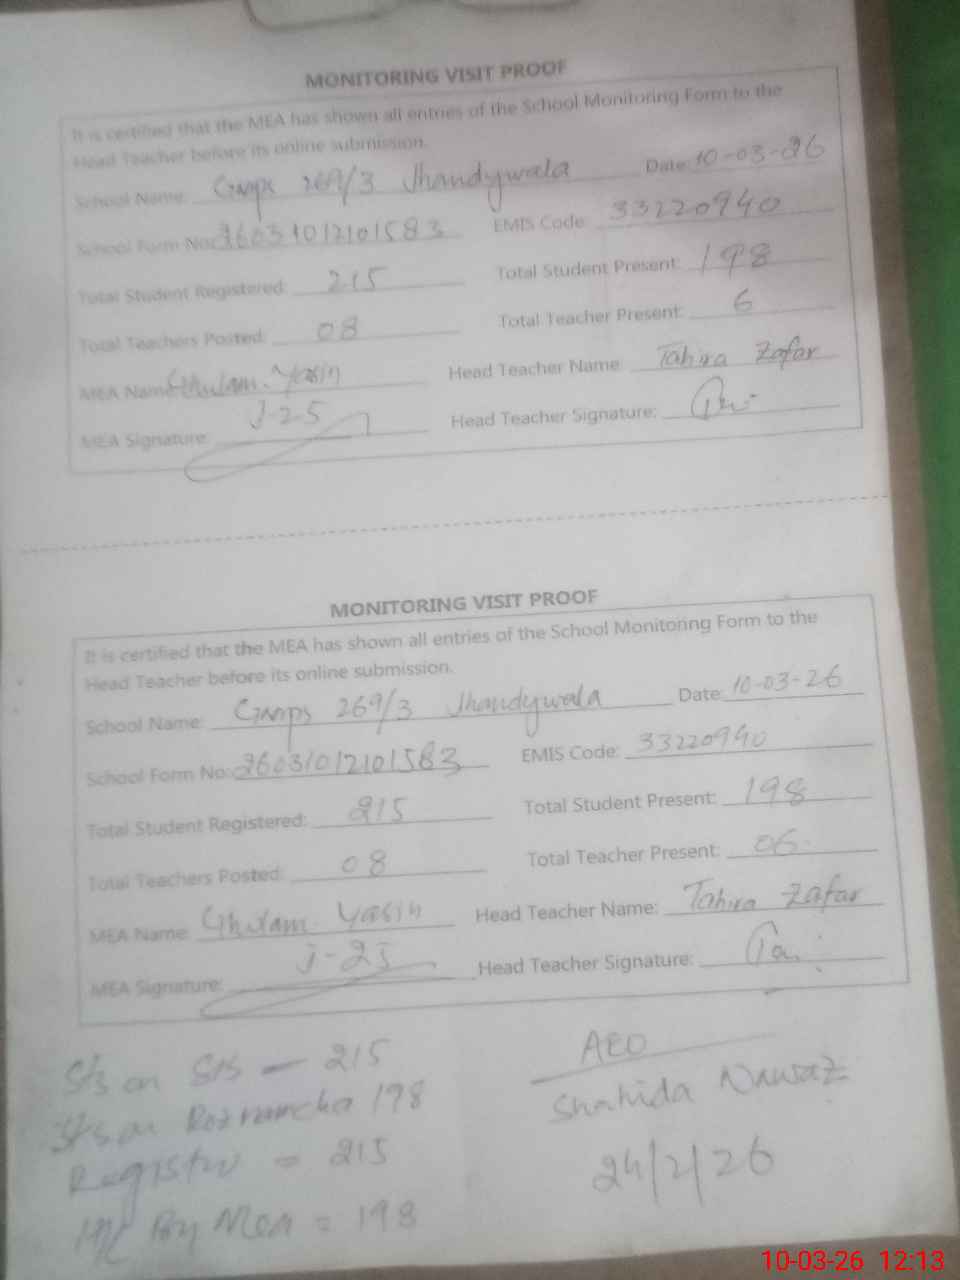 MONITORING VISIT PROOF
It is certified that the MEA has shown all entries of the School Monitoring Form to the
Head Teacher before its online submission.
School Name: Gmps 269/3 Jhandywala Date: 10-03-26
School Form No: 26031012101583 EMIS Code: 33220940
Total Student Registered: 215 Total Student Present: 198
Total Teachers Posted: 08 Total Teacher Present: 6
MEA Name: Ghulam Yasin Head Teacher Name: Tahira Zafar
MEA Signature: J-25 Head Teacher Signature:
MONITORING VISIT PROOF
It is certified that the MEA has shown all entries of the School Monitoring Form to the
Head Teacher before its online submission.
School Name: Gmps 269/3 Jhandywala Date: 10-03-26
School Form No: 26031012101583 EMIS Code: 33220940
Total Student Registered: 215 Total Student Present: 198
Total Teachers Posted: 08 Total Teacher Present: 06
MEA Name: Ghulam Yasin Head Teacher Name: Tahira Zafar
MEA Signature: J-25 Head Teacher Signature:
AEO
St's on SIS — 215
Shahida Nawaz
St's on Roznamcha 198
Register = 215
24/2/26
H/C By Mea = 198
10-03-26 12:13